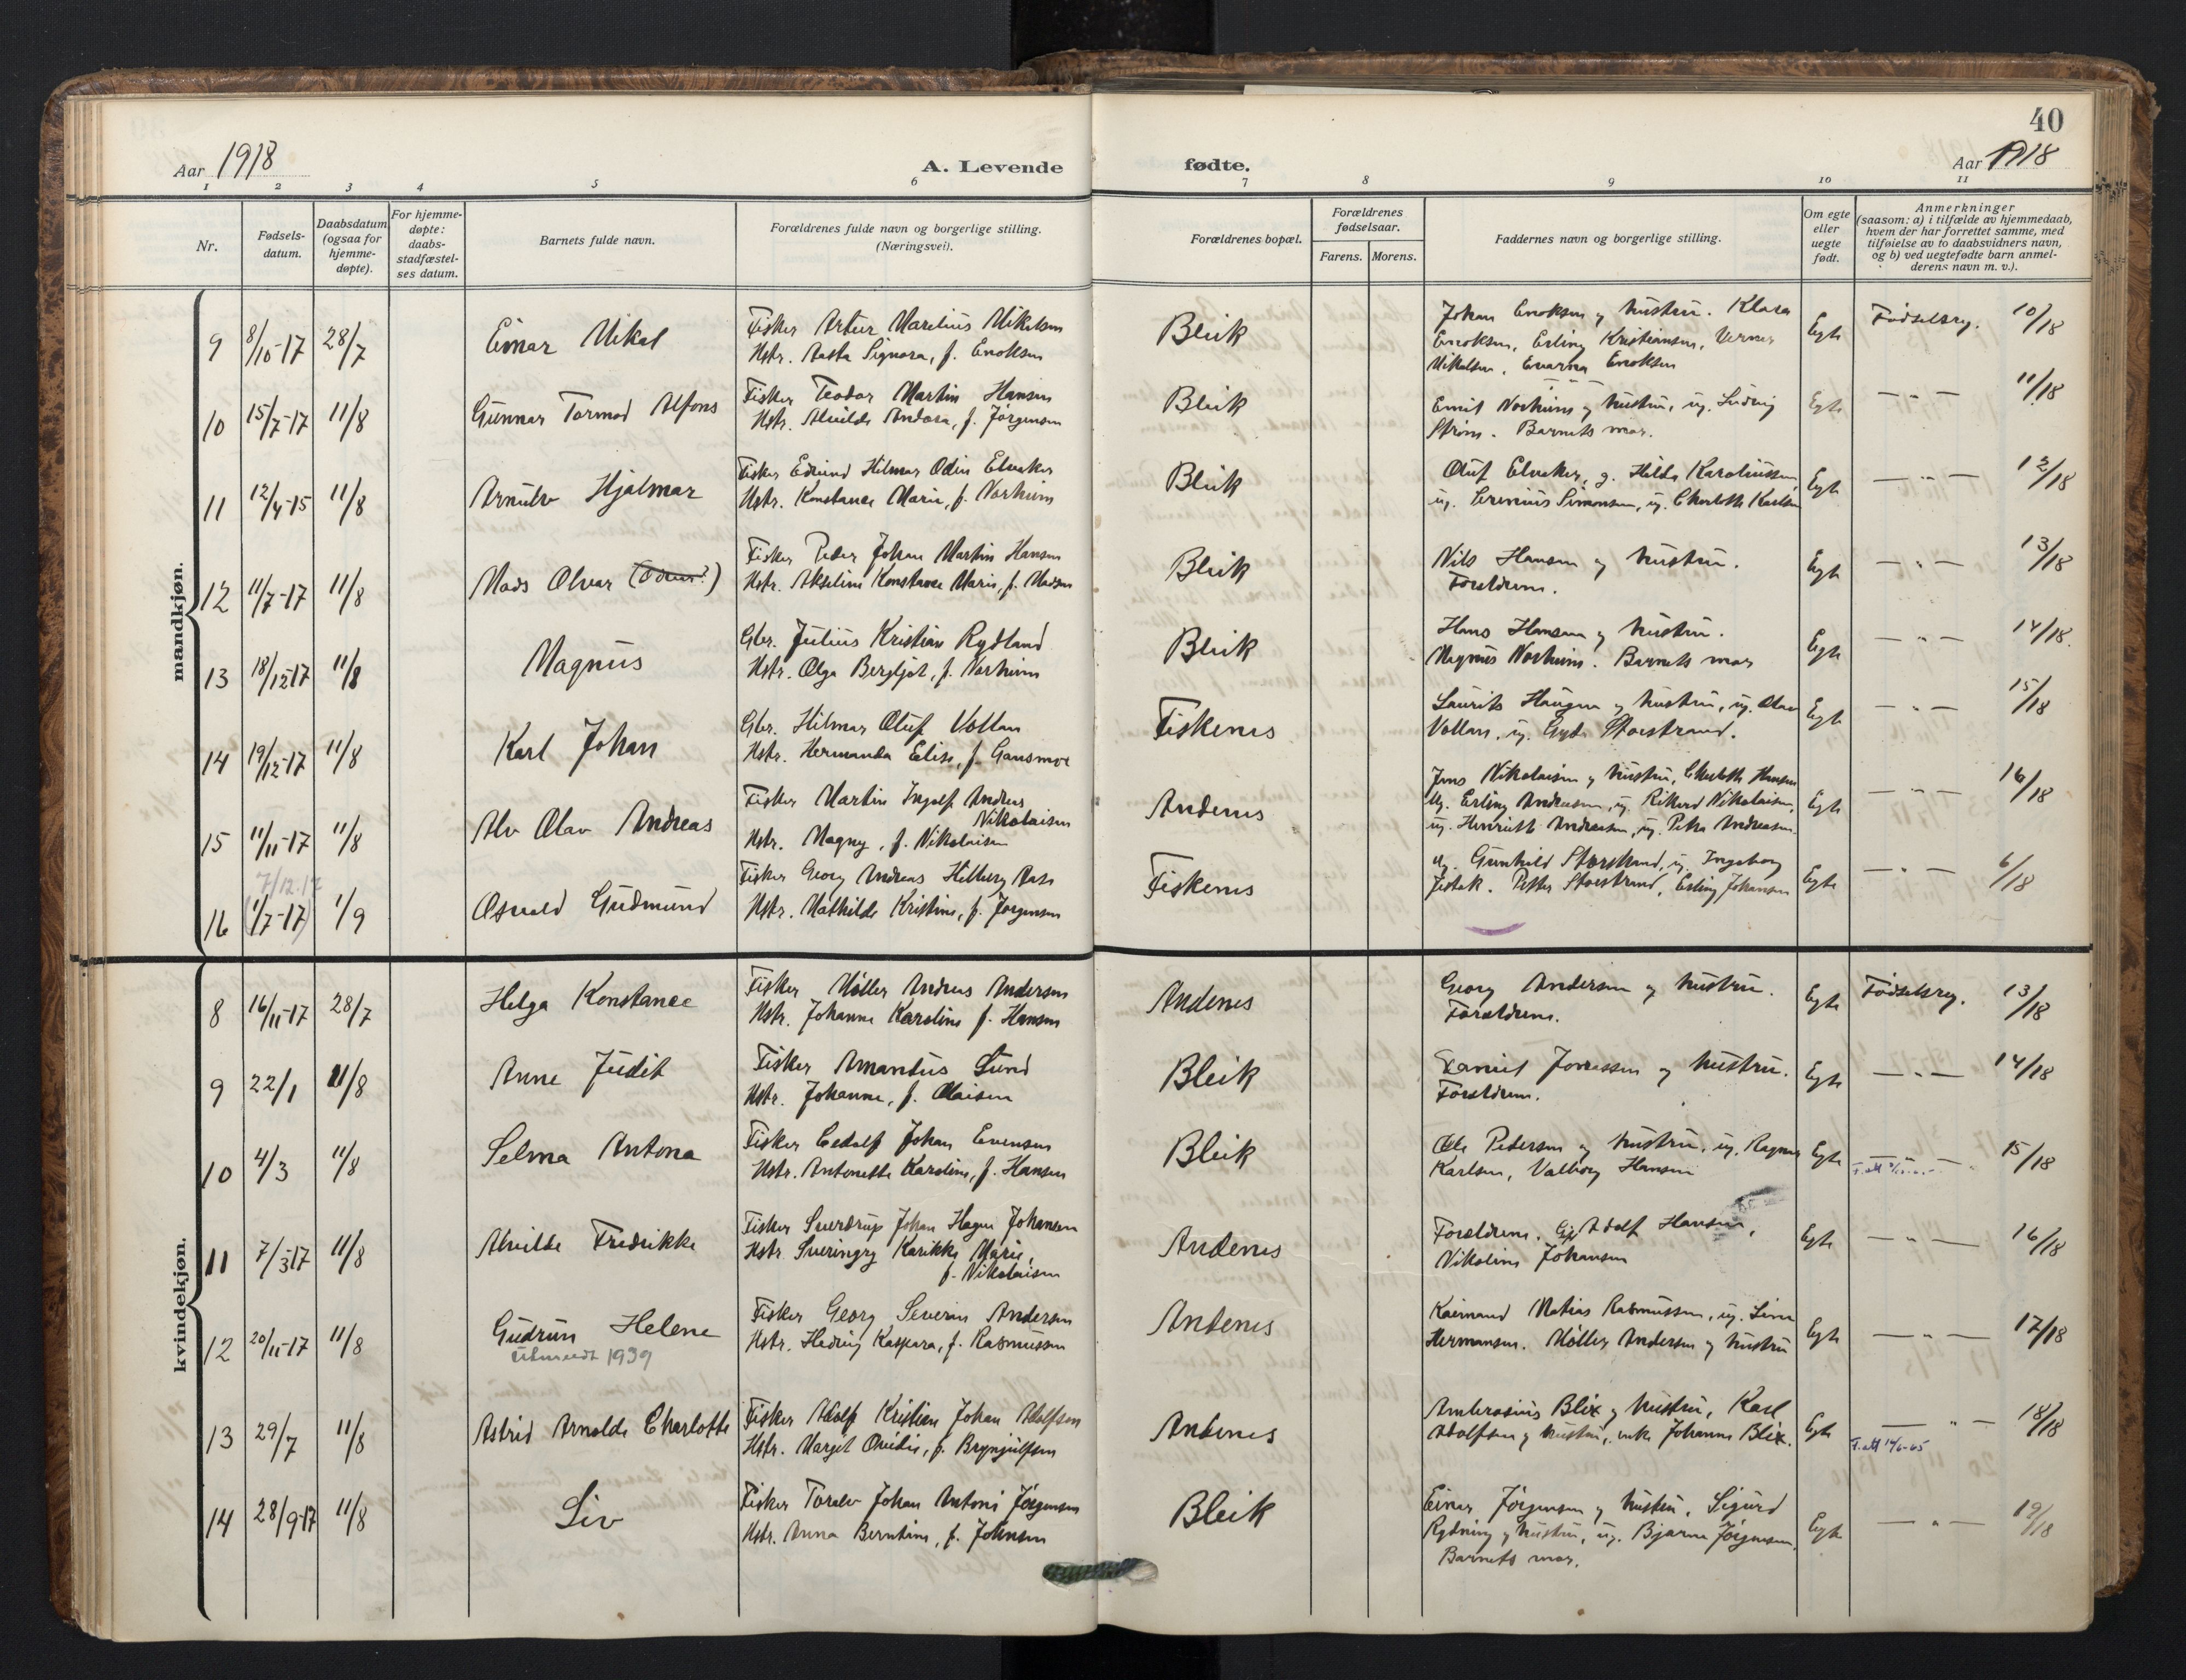 40
Aar 1918
A. Levende
fødte.
Aar 1918
1 2 3 4 5 6 7 8 9 10 11
Nr.
Fødsels-
datum.
Daabsdatum
(ogsaa for
hjemme-
døpte).
For hjemme-
døpte:
daabs-
stadfæstel-
ses datum.
Barnets fulde navn.
Forældrenes fulde navn og borgerlige stilling.
(Næringsvei).
Forældrenes bopæl.
Forældrenes
fødselsaar.
Farens. Morens.
Faddernes navn og borgerlige stilling.
Om egte
eller
uegte
født.
Anmerkninger
(saasom: a) i tilfælde av hjemmedaab,
hvem der har forrettet samme, med
tilføielse av to daabsvidners navn,
og b) ved uegtefødte barn anmel-
derens navn m. v.).
mandkjøn.
9 8/10-17 28/7 Einar Mikal
Fisker Artur Marelius Mikalsen
Hstr. Aasta Signora, f. Enoksen
Bleik
Johan Enoksen og hustru. Klara
Enoksen, Erling Kristiansen, Verner
Mikalsen, Enoksen
Egte Fødselsreg. 10/18
10 15/7-17 11/8 Gunnar Tormod Alfons
Fisker Teodor Martin Hansen
Hstr. Alvilde Andora, f. Jørgensen
Bleik
Emil Norheim og hustru, ug. Ludvig
Strøm. Barnets mor.
Egte — " — 11/18
11 12/4-15 11/8 Arnulv Hjalmar
Fisker Edvind Hilmar Odin Elvaker
Hstr. Konstance Marie, f. Norheim
Bleik
Oluf Elvaker, g. Hilda Karoliussen,
ug. Serenius Simonsen, ug. Charlotte Karlsen
Egte — " — 12/18
12 11/7-17 11/8 Mads Olvar
Fisker Peder Johan Martin Hansen
Hstr. Akseline Konstance Marie, f. Madsen
Bleik
Nils Hansen og hustru.
Forældrene.
Egte — " — 13/18
13 18/12-17 11/8 Magnus
Gbr. Julius Kristian Rydland
Hstr. Olga Bergljot, f. Norheim
Bleik
Hans Hansen og hustru.
Magnus Norheim. Barnets mor
Egte — " — 14/18
14 19/12-17 11/8 Karl Johan
Gbr. Hilmar Oluf Vollan
Hstr. Hermanda Elise, f. Gansmoe
Fiskenes
Laurits Haugen og hustru, ug.
Vollan, ug. Gyda Storstrand.
Egte — " — 15/18
15 11/11-17 11/8 Alv Olav Andreas
Fisker Martin Ingolf Andreas
Nikolaisen
Hstr. Magny, f. Nikolaisen
Andenes
Jens Nikolaisen og hustru, Charlotte Hansen
Ug. Erling Andreasen, ug. Rikard Nikolaisen,
ug. Henriette Andreasen, ug. Petra Andreasen
Egte — " — 16/18
7/12.17
16 (1/7-17) 1/9 Osvald Gudmund
Fisker Georg Andreas Hilberg
Hstr. Mathilde Kristine, f. Jørgensen
Fiskenes
Ug. Gunhild Storstrand, ug. Ingeborg
Petter Storstrand, Erling Johansen
Egte — " — 6/18
kvindekjøn.
8 16/11-17 28/7 Helga Konstance
Fisker Møller Andreas Andersen
Hstr. Johanne Karoline f. Hansen
Andenes
Georg Andersen og hustru.
Forældrene.
Egte Fødselsreg. 13/18
9 22/1 11/8 Anne Judit
Fisker Amandus Lund
Hstr. Johanne, f. Olaisen
Bleik
Daniel Jonassen og hustru.
Forældrene.
Egte — " — 14/18
10 4/3 11/8 Selma Antona
Fisker Edolf Johan Evensen
Hstr. Antonette Karoline, f. Hansen
Bleik
Ole Pedersen og hustru, ug. Ragna
Karlsen, Valborg Hansen
Egte — " — 15/18
11 7/3-17 11/8 Alvilde Fredrikke
Fisker Sverdrup Johan Hagen Johansen
Hstr. Karikke Marie,
f. Nikolaisen
Andenes
Forældrene. Adolf Hansen,
Nikoline Johansen
Egte — " — 16/18
12 20/11-17 11/8 Gudrun Helene
Utmeldt 1939
Fisker Georg Severin Andersen
Hstr. Hedvig Kaspara, f. Rasmussen
Andenes
Matias Rasmussen, ug. Lina
Hermansen. Møller Andersen og hustru
Egte — " — 17/18
13 29/7 11/8 Astrid Arnolde Charlotte
Fisker Adolf Kristian Johan Adolfsen
Hstr. Margit Ovidie, f. Brynjulfsen
Andenes
Ambrosius Blix og hustru, Karl
Adolfsen og hustru, enke Johanna Blix.
Egte — " — 18/18
F. att 14/6-65
14 28/9-17 11/8 Siv
Fisker Toralv Johan Antoni Jørgensen
Hstr. Anna Berntine, f. Johnsen
Bleik
Einar Jørgensen og hustru, Sigurd
Rydning og hustru, ug. Bjarne Jørgensen.
Barnets mor.
Egte — " — 19/18